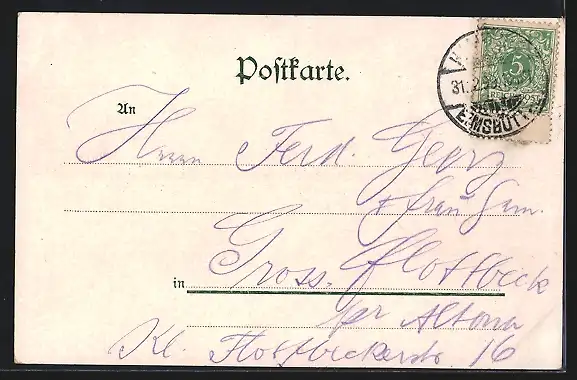 Postkarte.
5
REICHSPOST
31.12.99
EIMSBÜTTEL
An
Herrn Ferd. Georg
+ Frau Gem.
in Gross. Flottbeck
per Altona
Kl. Flottbeckerstr 16